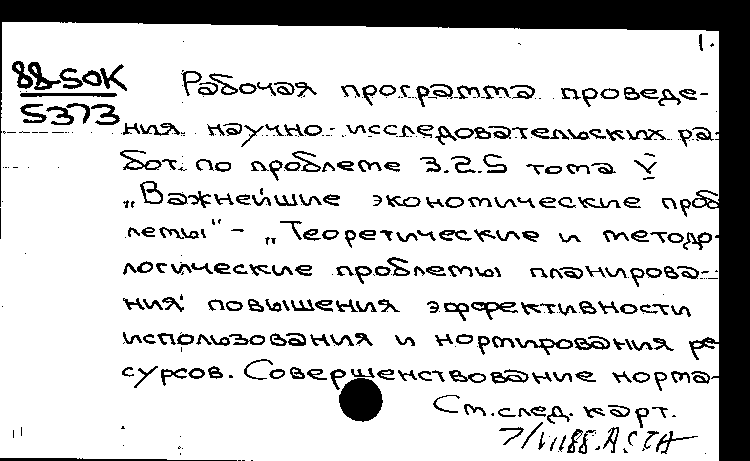 1.
88-5OK
5373
Рабочая программа проведе-
ния научно-исследовательских ра-
бот по проблеме 3.2.5 тома V
„Важнейшие экономические проб
лемы" - „Теоретические и методо-
логические проблемы планирова-
ния повышения эффективности
использования и нормирования ре
сурсов. Совершенствование норма-
См. след. карт.